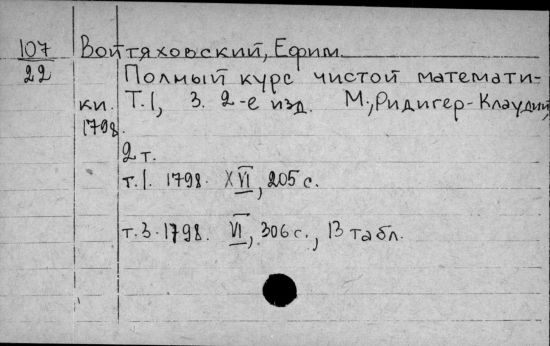 107
22
Войтяховский, Ефим
Полный курс чистой математи-
ки. Т.1, 3. 2-е изд. М., Ридигер-Клаудий,
1798.
2 т.
т.1. 1798. XVI, 205 с.
т.3. 1798. VI, 306 с., 13 табл.